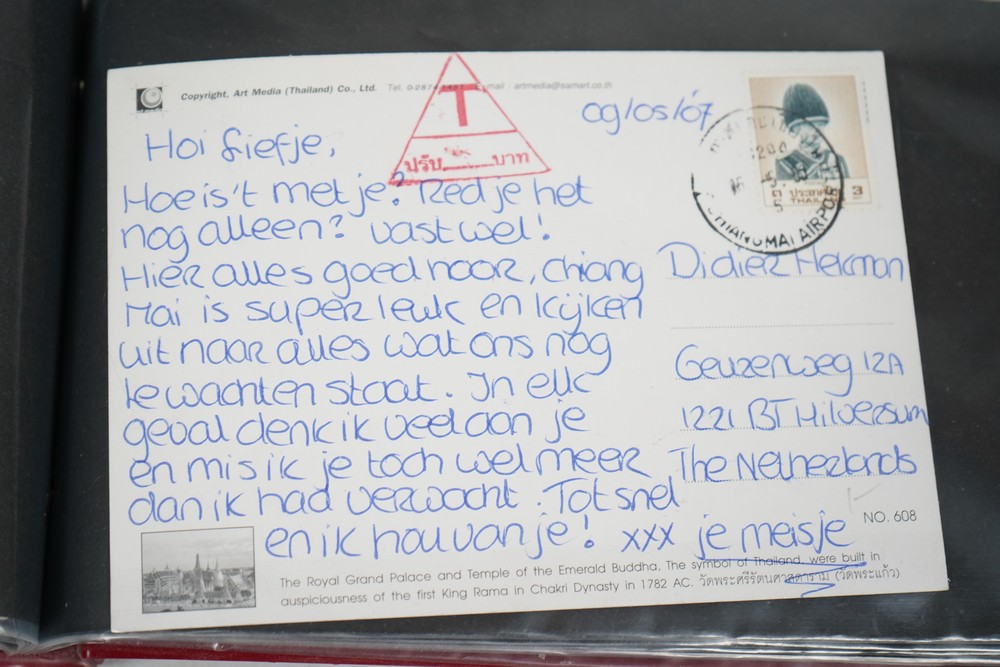 Copyright, Art Media (Thailand) Co., Ltd. Tel. 0-287 mail : artmedia@samart.co.th
T
ปรับ บาท
09/05/'07
CHIANGMAI AIRPO
ประเทศ
๓ THAI 3
Hoi liefje,
Hoe is 't met je? Red je het
nog alleen? Vast wel!
Hier alles goed hoor, Chiang
Mai is super leuk en kijken
uit naar alles wat ons nog
te wachten staat. In elk
geval denk ik veel aan je
en mis ik je toch wel meer
dan ik had verwacht. Tot snel
en ik hou van je! xxx je meisje
Didier Hekman
Geuzenweg 12A
1221 BT Hilversum
The Netherlands
NO. 608
The Royal Grand Palace and Temple of the Emerald Buddha, The symbol of Thailand, were built in
auspiciousness of the first King Rama in Chakri Dynasty in 1782 AC. วัดพระศรีรัตนศาสดาราม (วัดพระแก้ว)